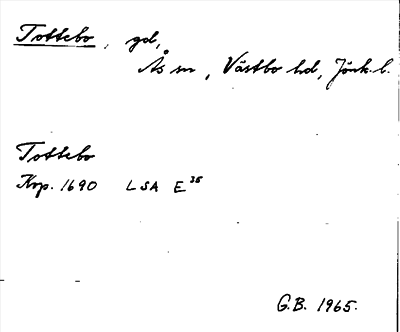 Tottebo, gd,
Ås sn, Västbo hd, Jönk. l.
Tottebo
Krp. 1690 LSA E 35
G.B. 1965.